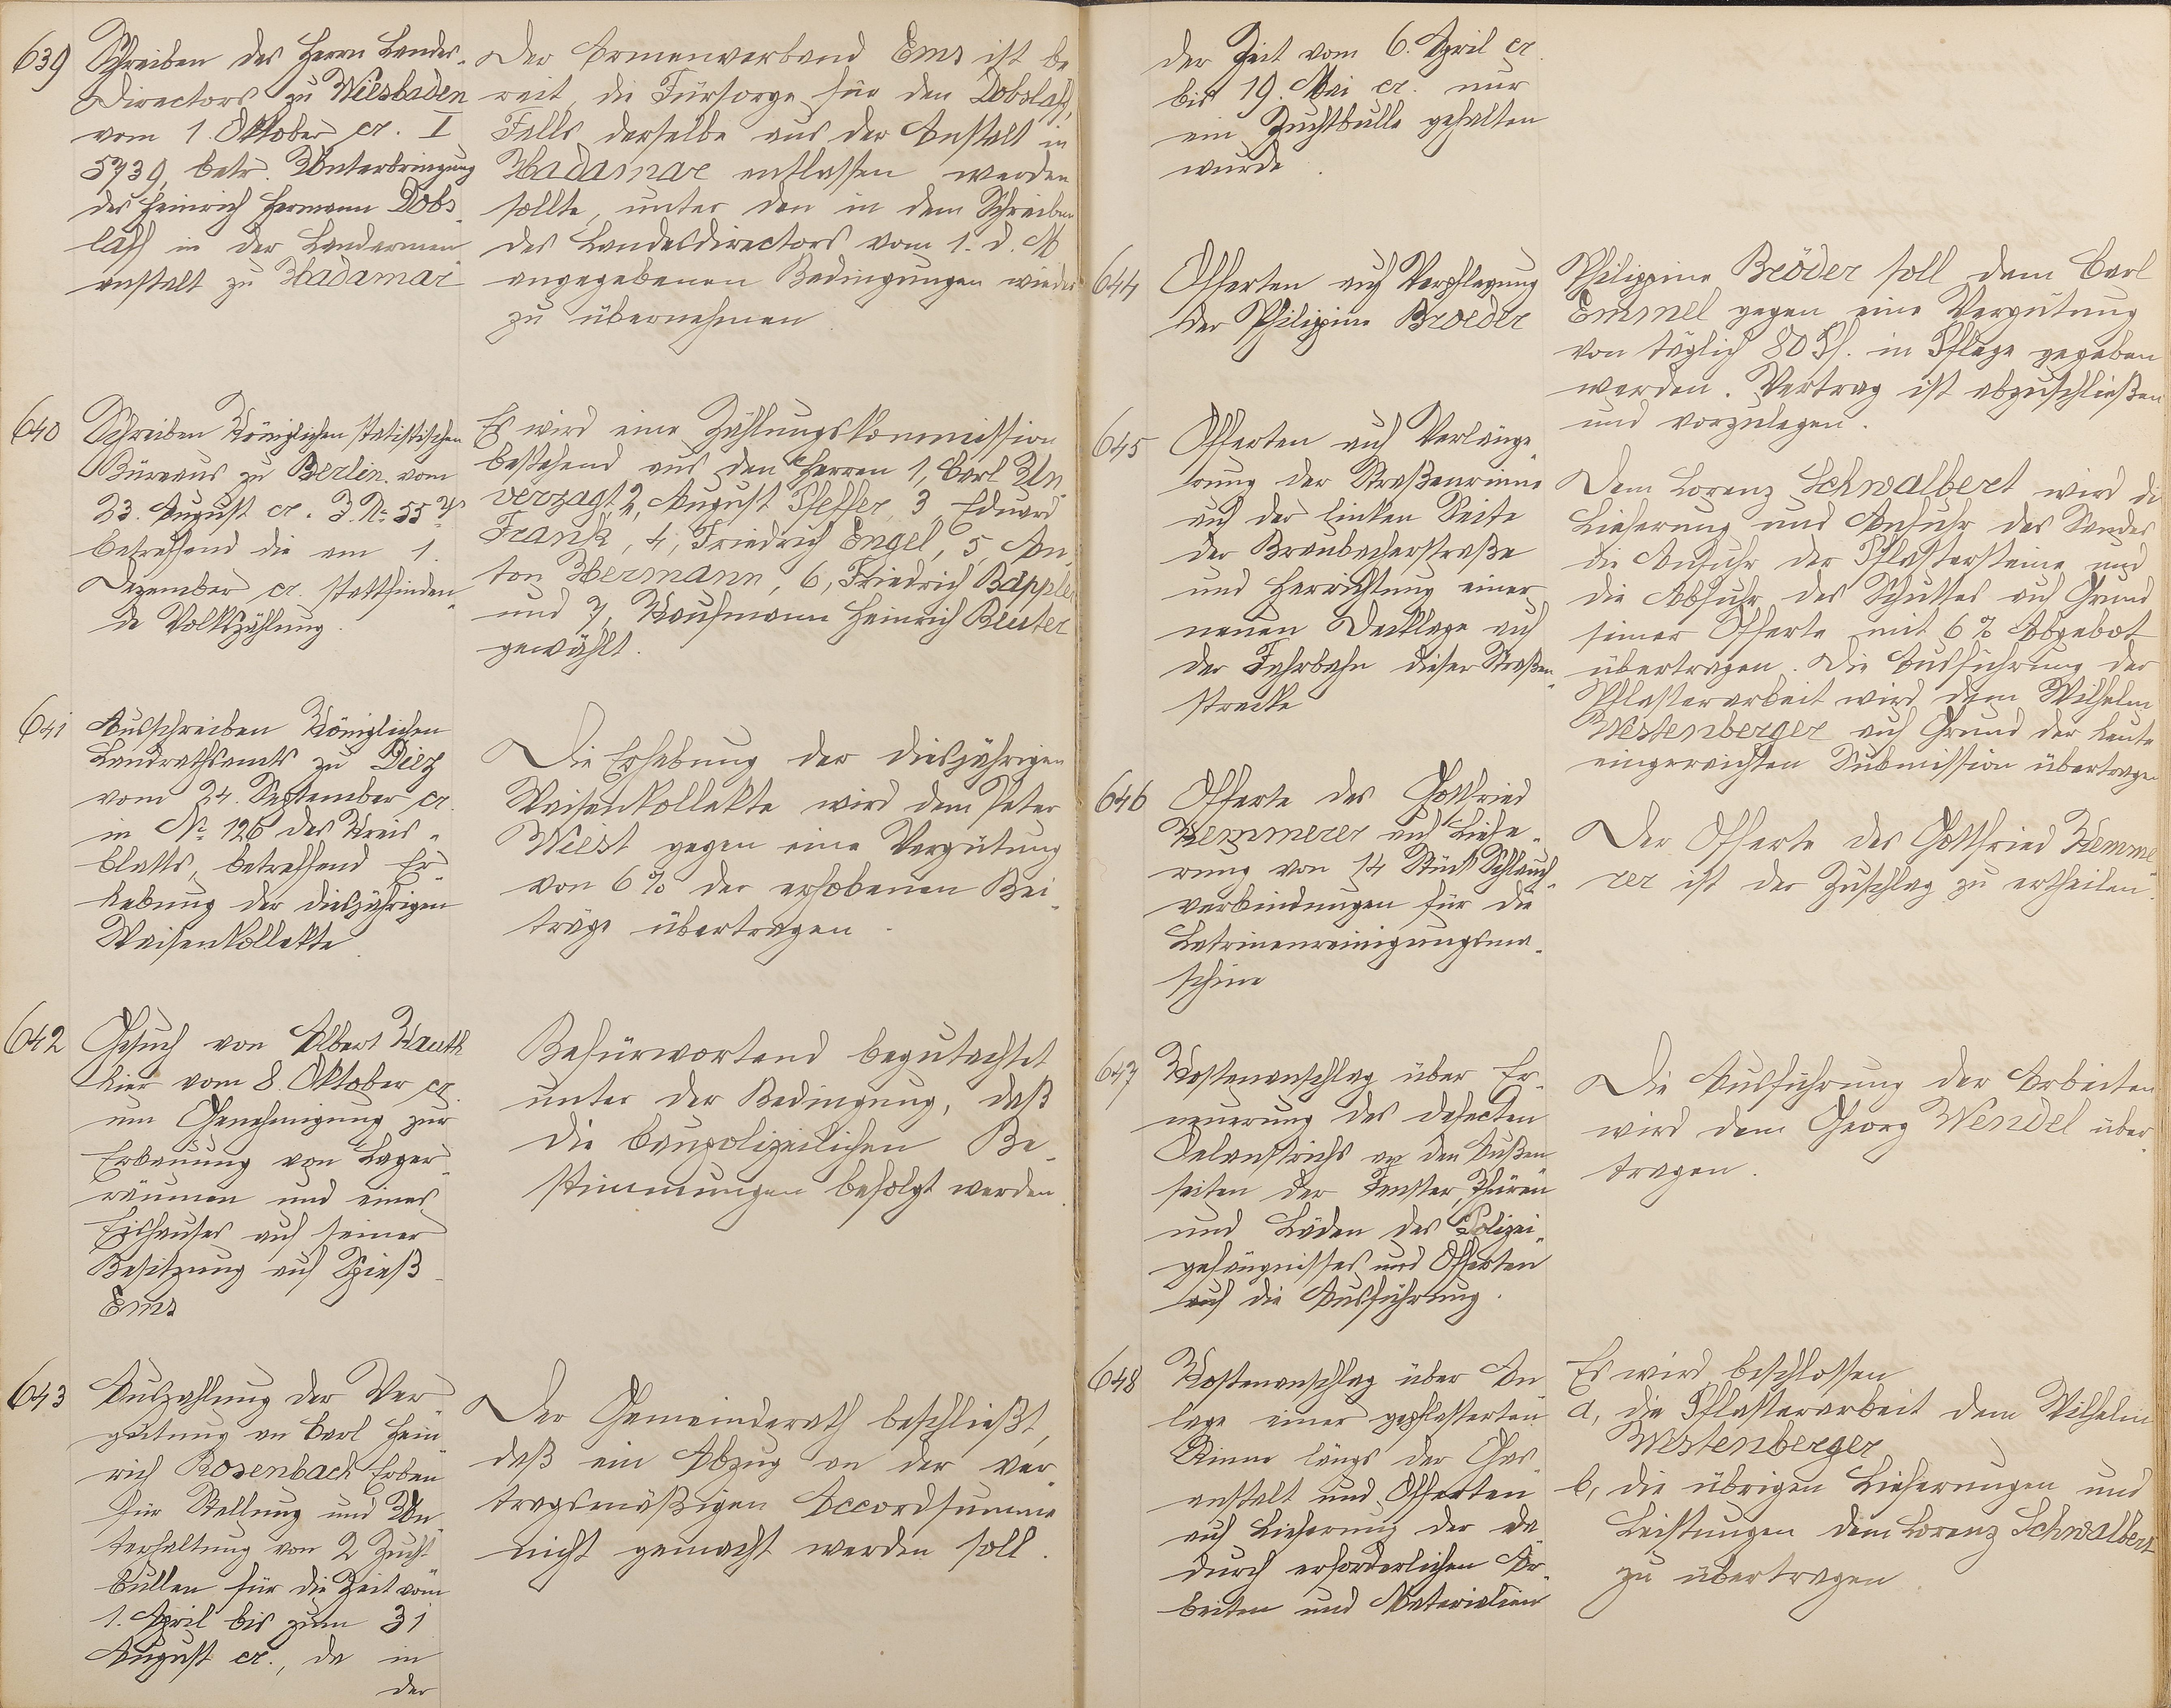 639
Schreiben des Herrn Landes-
Directors zu Wiesbaden
vom 1. Oktober cr. I
5739, betr. Unterbringung
des Heinrich Hermann Dobs-
laff in der Landarmen-
anstalt zu Hadamar
Der Armenverband Ems ist be
reit, die Fürsorge für den Dobslaff,
Falls derselbe aus der Anstalt in
Hadamar entlassen werden
sollte, unter den in dem Schreiben
des Landesdirectors vom 1. d. M
angegebenen Bedingungen wieder
zu übernehmen.
640
Schreiben Königlichen statistischen
Büreaus zu Berlin vom
23. August cr. J. No 55
betreffend die am 1.
Dezember cr. stattfinden-
de Volkszählung.
Es wird eine Zählungskommission
bestehend aus den Herren 1, Carl Un
verzagt, 2, August Pfeffer, 3, Eduard
Frank, 4, Friedrich Engel, 5, An-
ton Hermann, 6, Friedrich Bäppler
und 7, Kaufmann Heinrich Reuter
gewählt.
641
Ausschreiben Königlichen
Landrathsamts zu Diez
vom 24. September cr.
in No 126 des Kreis-
blatts, betreffend Er-
hebung der diesjährigen
Waisenkollekte
Die Erhebung der diesjährigen
Waisenkollekte wird dem Peter
Wiest gegen eine Vergütung
von 6% der erhobenen Bei-
träge übertragen.
642
Gesuch von Albert Kauth
hier vom 8. Oktober cr.
um Genehmigung zur
Erbauung von Lager-
räumen und eines
Eishauses auf seiner
Besitzung auf Spieß-
Ems
Befürwortend begutachtet
unter der Bedingung, daß
die baupolizeilichen Be-
stimmungen befolgt werden.
643
Auszahlung der Ver-
gütung an Carl Hein-
rich Rosenbach Erben
für Stellung und Un-
terhaltung von 2 Zucht-
bullen für die Zeit vom
1. April bis zum 31
August cr., da in
der
Der Gemeinderath beschließt,
daß ein Abzug an der ver-
tragsmäßigen Accordsumme
nicht gemacht werden soll.
der Zeit vom 6. April cr.
bis 19. Mai cr. nur
ein Zuchtbulle gehalten
wurde.
644
Offerten auf Verpflegung
der Philippine Broeder
Philippine Bröder soll dem Carl
Emmel gegen eine Vergütung
von täglich 80 Pf. in Pflege gegeben
werden. Vertrag ist abzuschließen
und vorzulegen.
645
Offerten auf Verlänge-
rung der Straßenrinne
auf der linken Seite
der Braubacherstraße
und Herrichtung einer
neuen Decklage auf
der Fahrbahn dieser Straßen-
strecke
Dem Lorenz Schwalbert wird die
Lieferung und Anfuhr des Sandes
die Anfuhr der Pflastersteine und
die Abfuhr des Schuttes auf Grund
seiner Offerte mit 6% Abgebot
übertragen. Die Ausführung der
Pflasterarbeit wird dem Wilhelm
Westenberger auf Grund der heute
eingereichten Submission übertragen
646
Offerte des Gottfried
Kemmerer auf Liefe-
rung von 14 Stück Schlauch-
verbindungen für die
Latrinenreinigungsma-
schine
Der Offerte des Gottfried Kemme-
rer ist der Zuschlag zu ertheilen.
647
Kostenanschlag über Er-
neuerung des defecten
Oelanstrichs an den Außen-
seiten der Fenster, Thüren
und Läden des Polizei-
gefängnisses und Offerten
auf die Ausführung.
Die Ausführung der Arbeiten
wird dem Georg Wendel über-
tragen.
648
Kostenanschlag über An
lage einer gepflasterten
Rinne längs der Gas-
anstalt und Offerten
auf Lieferung der da-
durch erforderlichen Ar-
beiten und Materialien
Es wird beschlossen
a, die Pflasterarbeit dem Wilhelm
Westenberger
b, die übrigen Lieferungen und
Leistungen dem Lorenz Schwalbert
zu übertragen